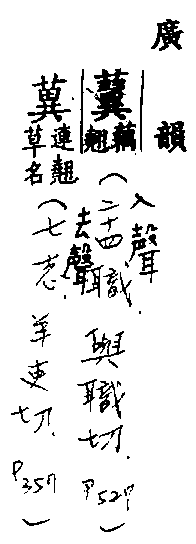 廣韻
藕翹（入聲二十四職．與職切．P527）
連翹草名（去聲七志．羊吏切．P357）